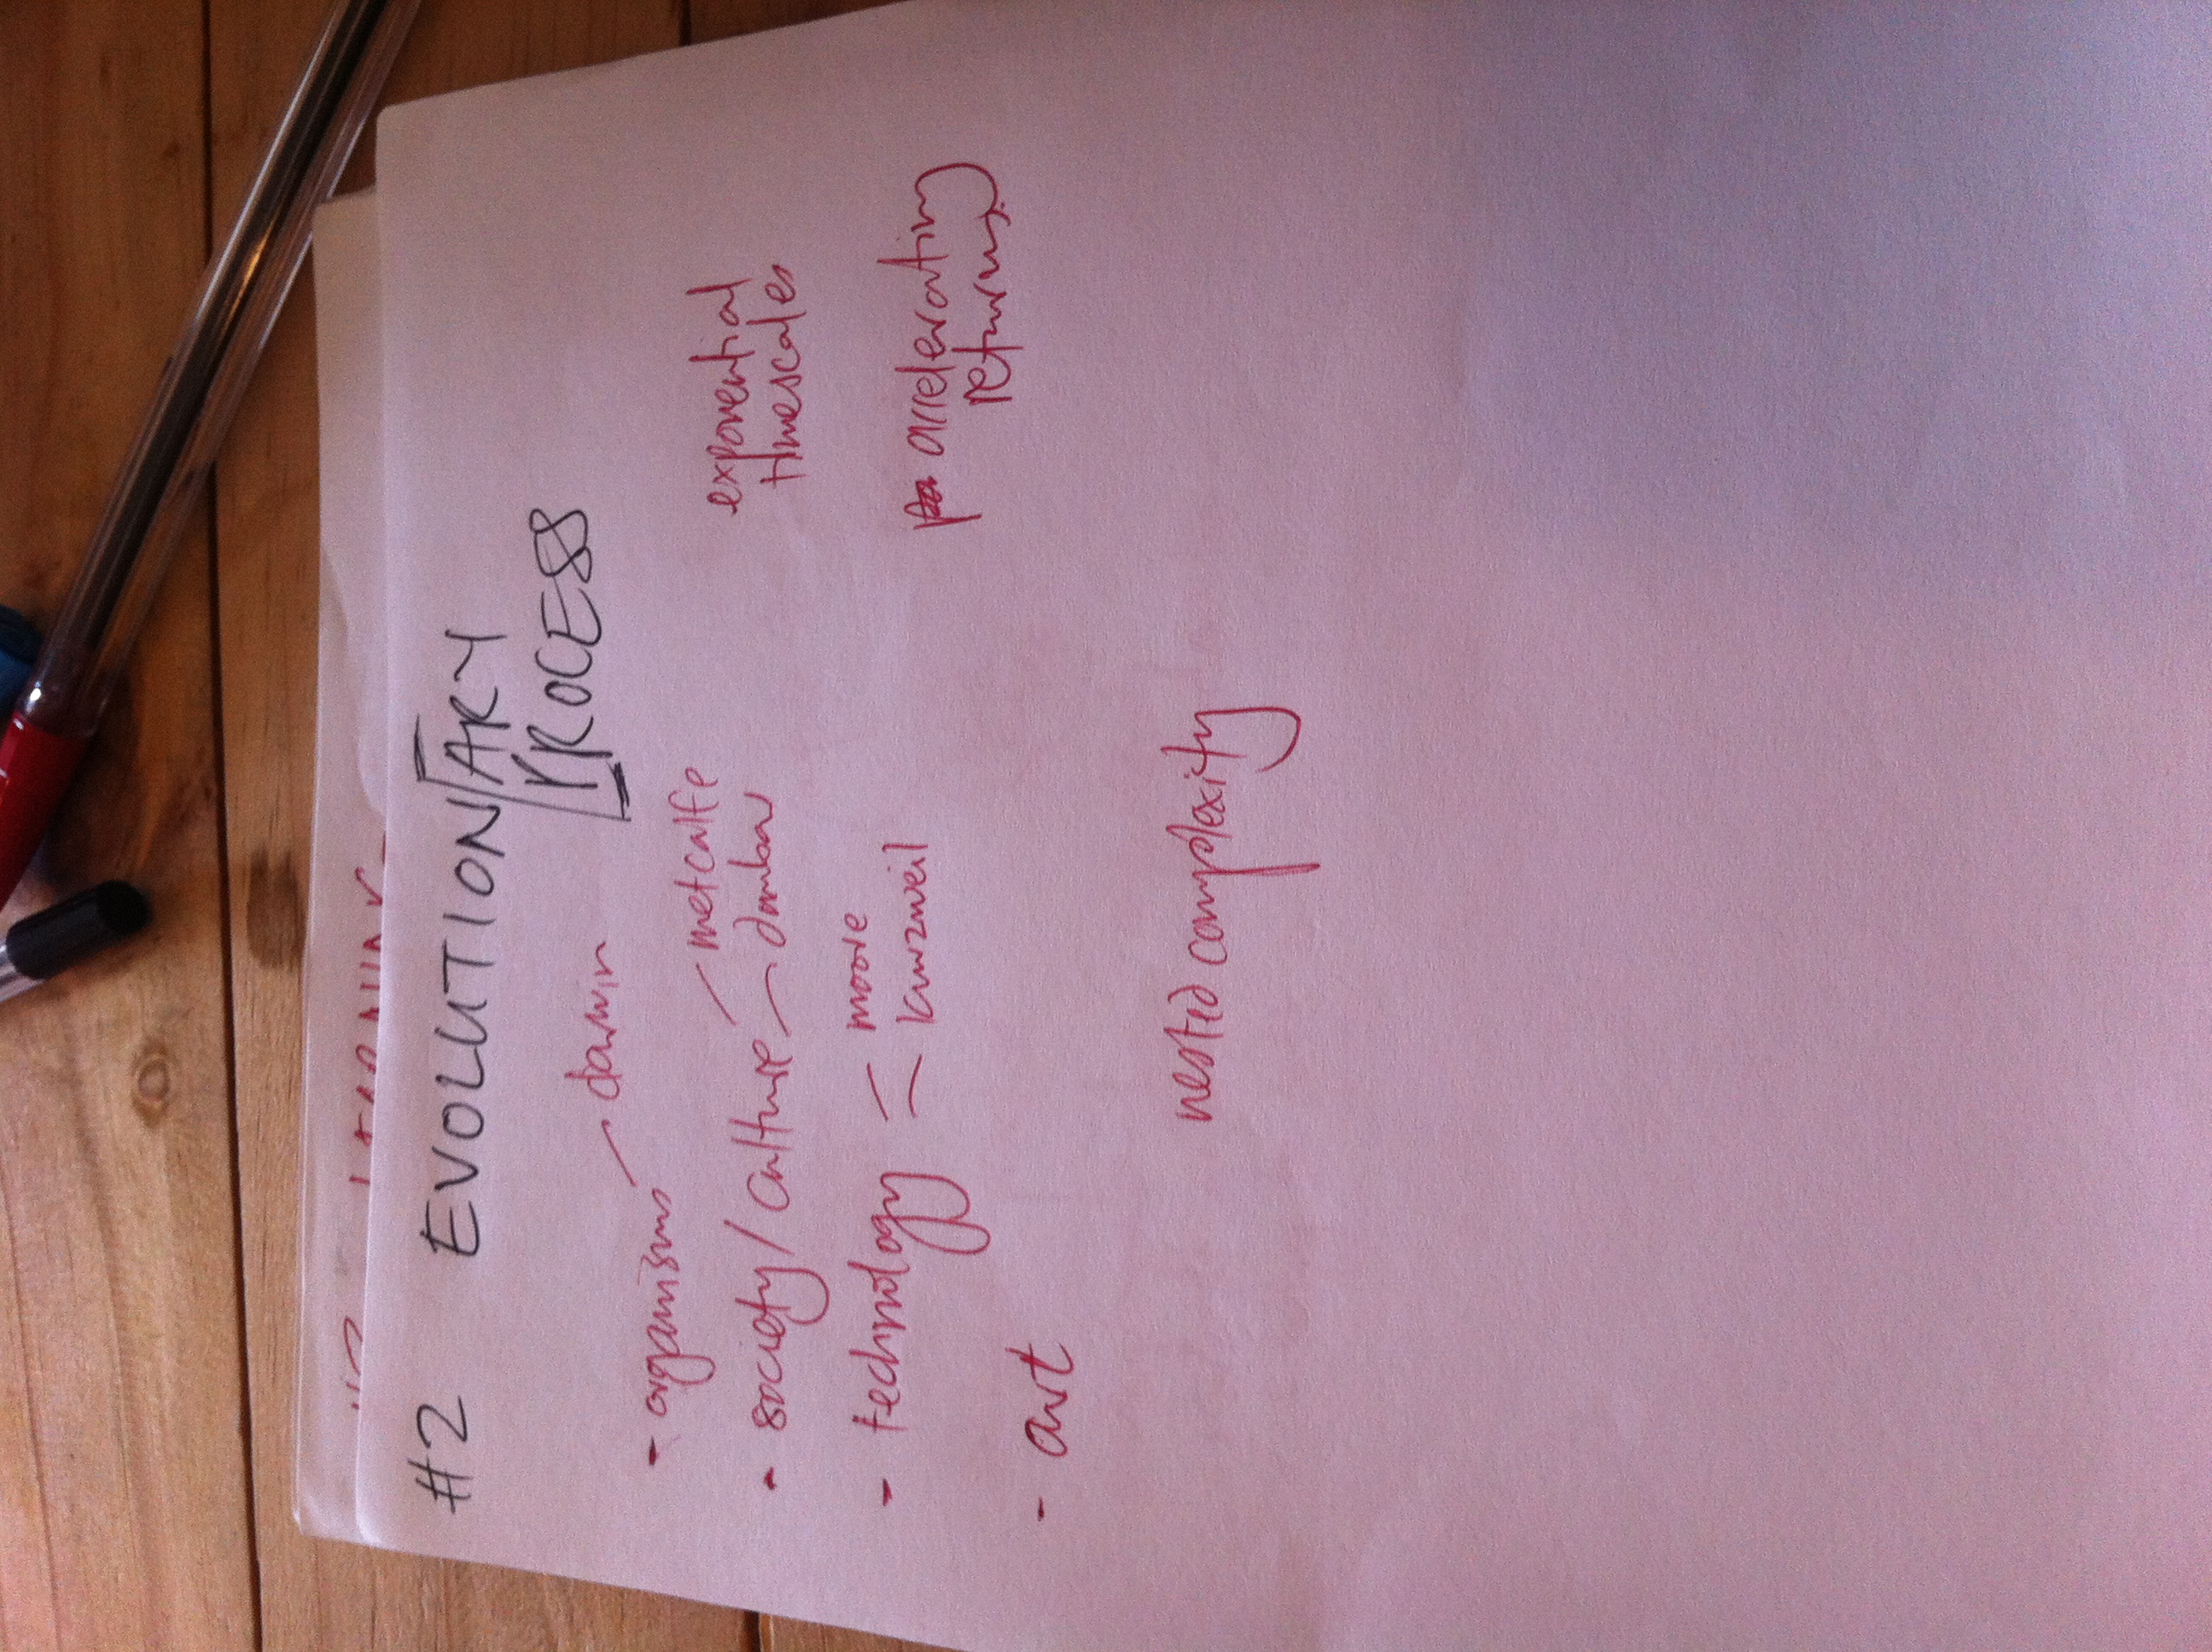 #2 EVOLUTION[ARY
PROCESS
- organisms — darwin
- society / culture — metcalfe
— dunbar
- technology — moore
— kurzweil
- art
exponential
timescales
accelerating
returns.
nested complexity